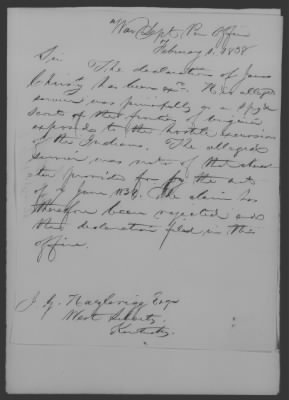 War Dept. Pen Office
February 1. 1838
Sir
The declaration of James
Christy has been exd. His alleged
service was principally as a Spy &
Scout of the frontier of Virginia
exposed to the hostile incursions
of the Indians. The alleged
service was not of that charac
ter provided for by the act
of 7 June 1832. The claim has
therefore been rejected and
the declaration filed in this
office.
J. G. Hazlerigg Esqr
West Liberty
Kentucky